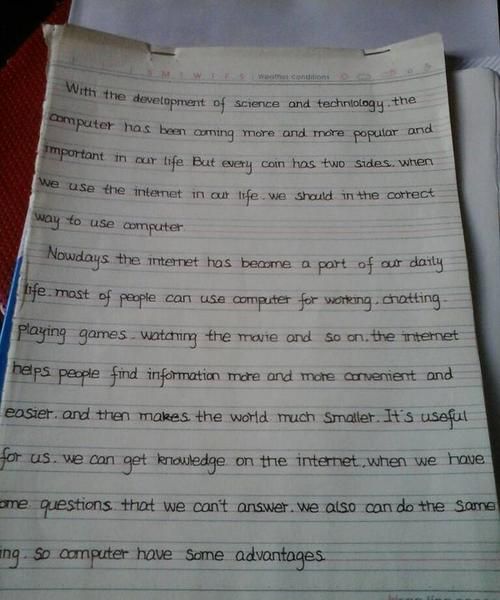 S M T W T F S Weather conditions
With the development of science and technlology. the
computer has been coming more and more popular and
important in our life But every coin has two sides. when
we use the internet in our life. we should in the correct
way to use computer.
Nowdays the internet has become a part of our daily
life. most of people can use computer for working. chatting.
playing games. watching the movie and so on. the internet
helps people find information more and more convenient and
easier. and then makes the world much smaller. It's useful
for us. we can get knowledge on the internet. when we have
ome questions that we can't answer. we also can do the same
ing. so computer have some advantages.